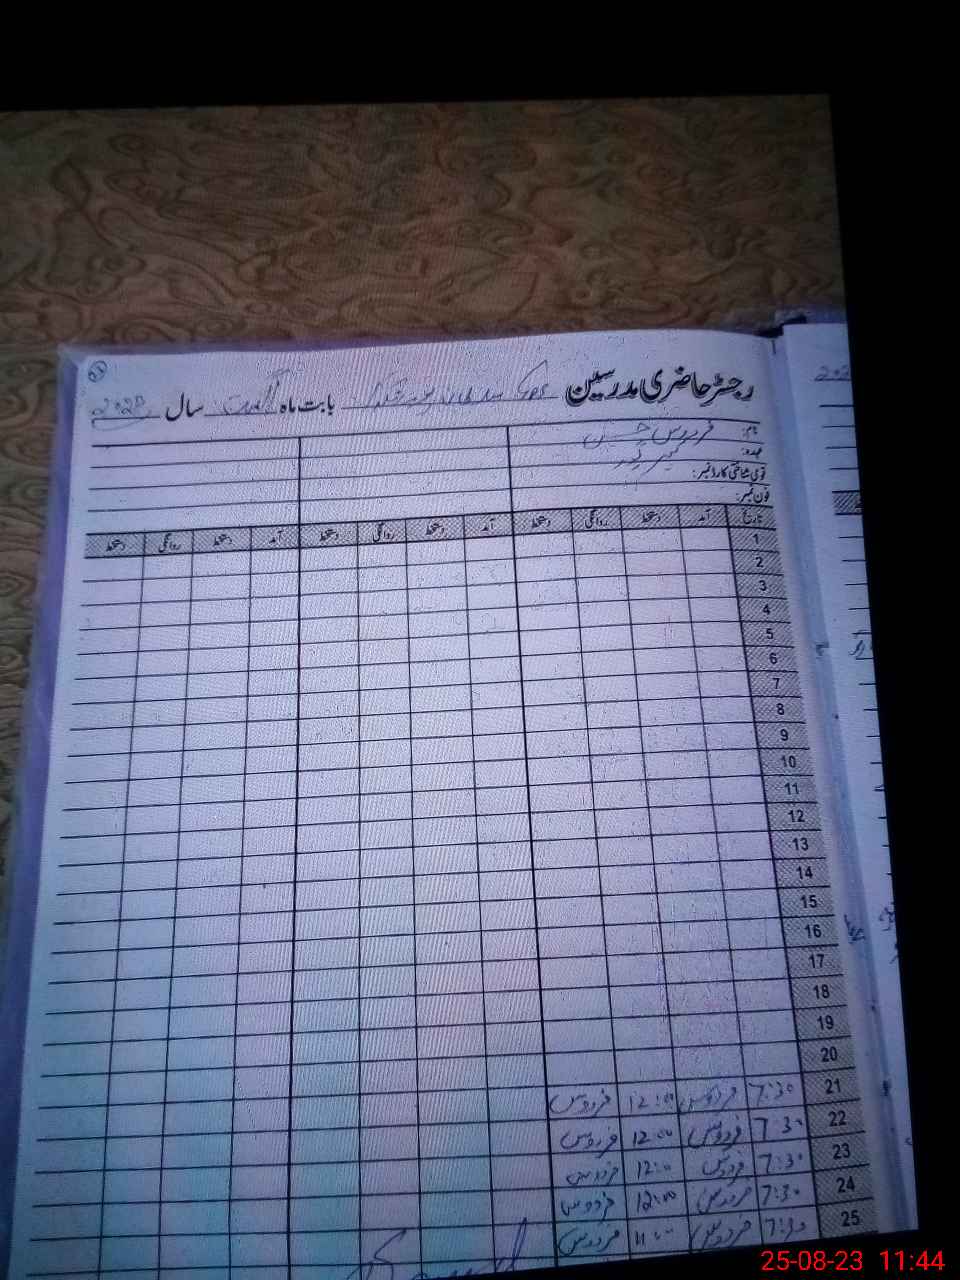 رجسٹر حاضری مدرسین GPS بابت ماہ اگست سال
نام: فردوس
عہدہ:
قومی شناختی کارڈ نمبر:
فون نمبر:
تاریخ آمد دستخط روانگی دستخط آمد دستخط روانگی دستخط آمد دستخط روانگی دستخط
1
2
3
4
5
6
7
8
9
10
11
12
13
14
15
16
17
18
19
20
21 7:30 فردوس 12:00 فردوس
22 7:30 فردوس 12:00 فردوس
23 7:30 فردوس 12:00 فردوس
24 7:30 فردوس 12:00 فردوس
25 7:30 فردوس 11:00 فردوس
25-08-23 11:44